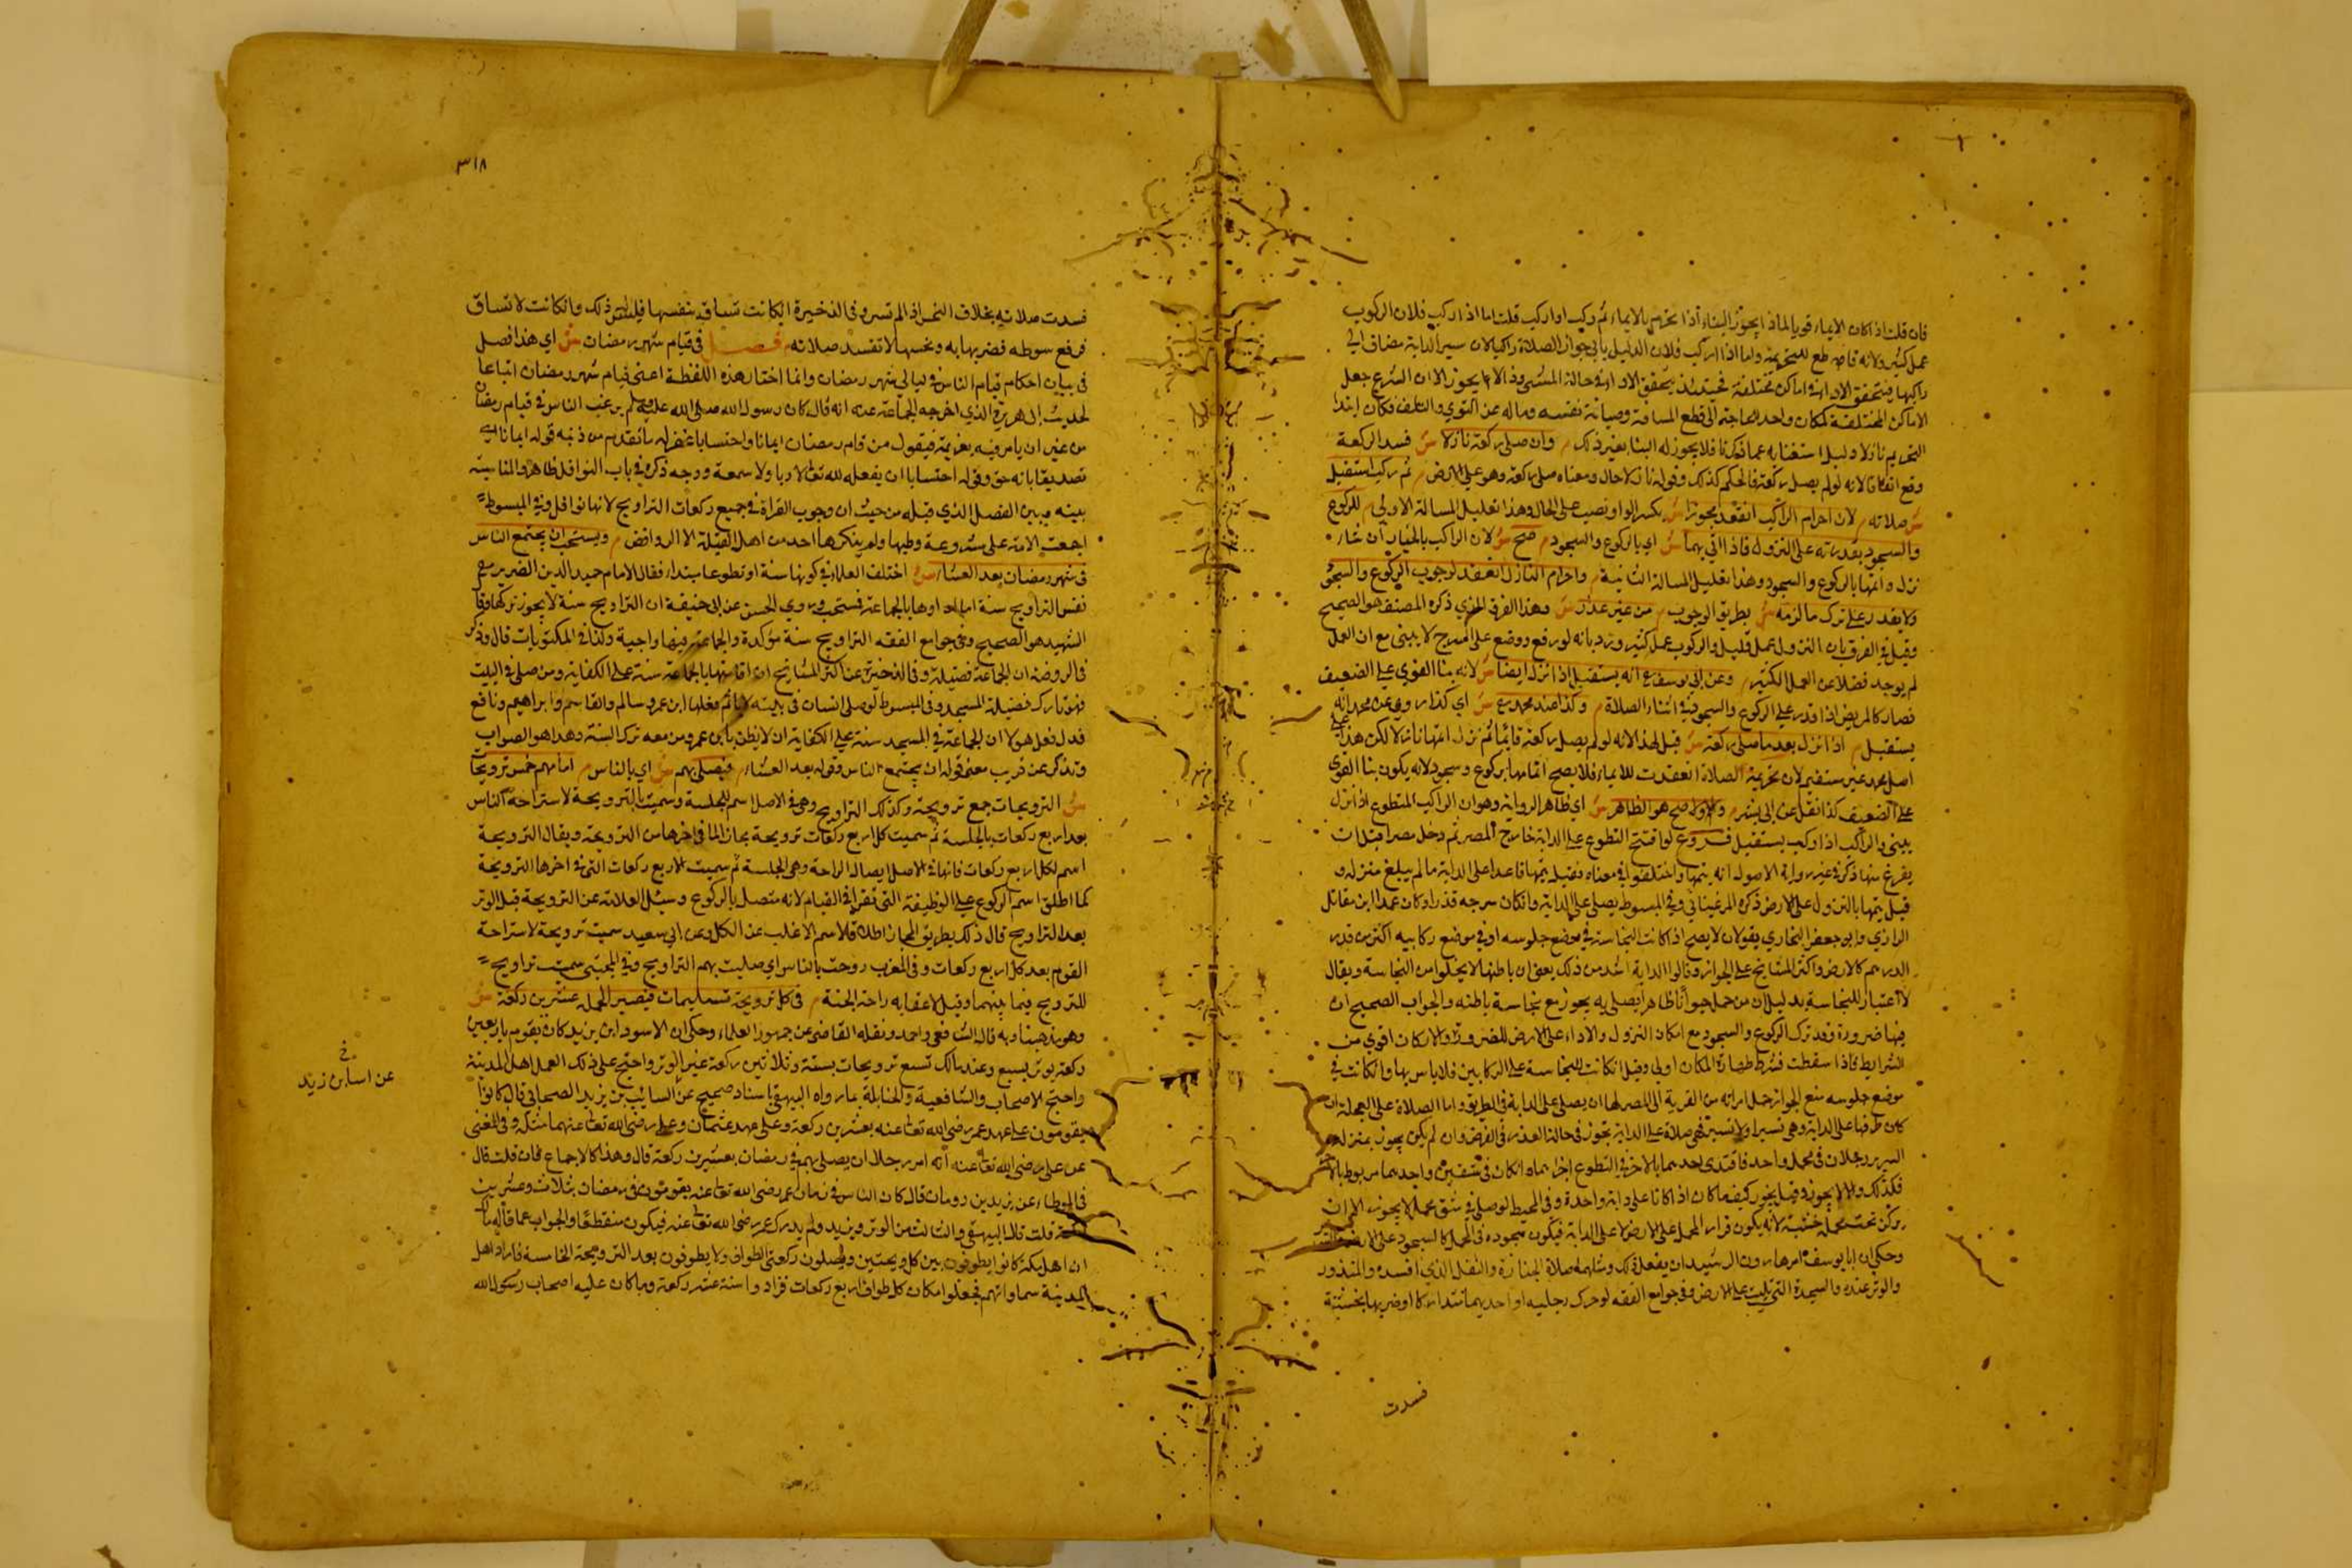 فان قلت اذا كان الايماء قويا لماذا يجوز البناء اذا تحرم بالايماء ثم ركب او اركب قلت اما اذا ركب فلان الركوب
عمل كثير ولانه قاطع للتحريمة واما اذا اركب فلان الدليل يابى جواز الصلاة راكبا لان سير الدابة مضاف الى
راكبها فيتحقق الاداء في اماكن مختلفة فحينئذ يتحقق الاداء في حالة المشى وذا لا يجوز الا ان الشرع جعل
الاماكن المختلفة كمكان واحد لحاجته الى قطع المسافة وصيانة نفسه وماله عن التوي والتلف فكان ابتدا
التحريم نازلا دليل استغنايه عما ذكرنا فلا يجوز له البنا بغير ذلك م وان صلى ركعة نازلا ش فسد الركعة
وقع اتفاقا لانه لو لم يصل ركعة فالحكم كذلك وقوله نازلا حال ومعناه صلى ركعة وهو على الارض م ثم ركب استقبل
ش صلاته م لان احرام الراكب انعقد مجوزا ش بكسر الواو نصب على الحال وهذا تعليل المسالة الاولى م للركوع
والسجود بقدرته على النزول فاذا اتى بهما ش اي بالركوع والسجود م صح ش لان الراكب بالخيار ان شاء
نزل واتمها بالركوع والسجود وهذا تعليل المسالة الثانية م واحرام النازل انعقد لوجوب الركوع والسجود
ولا يقدر على ترك ما لزمه ش بطريق الوجوب م من غير عذر ش وهذا الفرق الذي ذكره المصنف هو الصحيح
وقيل في الفرق بان النزول عمل قليل والركوب عمل كثير ورد بانه لو رفع ووضع على السرج لا يبنى مع ان العمل
لم يوجد فضلا عن العمل الكثير م وعن ابي يوسف رح انه يستقبل اذا نزل ايضا ش لانه بنا القوي على الضعيف
فصار كالمريض اذا قدر على الركوع والسجود في اثناء الصلاة م وكذا عند محمد رح ش اي كذا روي عن محمد انه
يستقبل م اذا نزل بعد ما صلى ركعة ش قيل لهذا لانه لو لم يصل ركعة قائما ثم نزل اتمها نازلا لكن هذا على
اصل محمد غير مستقيم لان تحريمة الصلاة انعقدت للايماء فلا يصح اتمامها بركوع وسجود لانه يكون بنا القوي
على الضعيف كذا نقل عن ابي بشر م والاول اصح هو الظاهر ش اي ظاهر الرواية وهو ان الراكب المتطوع اذا نزل
يبنى والراكب اذا ركب يستقبل فروع لو افتتح التطوع على الدابة خارج المصر ثم دخل مصرا قبل ان
يفرغ منها ذكر في غير رواية الاصول انه يتمها واختلفوا في معناه فقيل يتمها قاعدا على الدابة ما لم يبلغ منزله و
قيل يتمها بالنزول على الارض ذكره المرغيناني وفي المبسوط يصلى على الدابة وان كان سرجه قذرا وكان محمد ابن مقاتل
الرازي وابو جعفر البخاري يقولان لا يصح اذا كانت النجاسة في موضع جلوسه او في موضع ركابيه اكثر من قدر
الدرهم كالارض واكثر المشايخ على الجواز وقالوا الدابة اشد من ذلك يعنى ان باطنها لا يخلوا من النجاسة ويقال
لا اعتبار للنجاسة بدليل ان من حمل حيوانا ظاهرا يصلى به يجوز مع نجاسة باطنه والجواب الصحيح ان
فيها ضرورة وقد ترك الركوع والسجود مع امكان النزول والاداء على الارض للضرورة والاركان اقوي من
الشرايط فاذا سقطت فشرط طهارة المكان اولى وقيل ان كانت النجاسة على الركابين فلا باس بها وان كانت في
موضع جلوسه منع الجواز حمل امراته من القرية الى المصر لها ان يصلى على الدابة في الطريق واما الصلاة على العجلة ان
كان طرفها على الدابة وهي تسير او لا تسير فهي صلاة على الدابة تجوز في حالة العذر في الفرض وان لم يكن يجوز بمنزلة
السرير رجلان في محمل واحد فاقتدى احدهما بالاخر في التطوع اجزاهما وان كان في شقين واحدهما مربوط بالاخر
فكذلك والا لا يجوز وقيل يجوز كيف ما كان اذا كانا على دابة واحدة وفي المحيط لو صلى في شق محمل لا يجوز الا ان
ركز تحت محمل خشبة لانه يكون قرار المحمل على الارض لا على الدابة فيكون سجوده في المحمل كالسجود على الارض
وحكي ان ابا يوسف امر هارون الرشيد ان يفعل ذلك ومثله صلاة الجنازة والنفل الذي افسده والمنذور
والوتر عنده والسجدة التي تليت على الارض وفي جوامع الفقه لو حرك رجليه او احديهما متداركا او ضربها بخشبة
فسدت
٣١٨
فسدت صلاته بخلاف النخس اذا لم تسر وفي الذخيرة ان كانت تنساق بنفسها فليس ذلك وان كانت لا تنساق
فرفع سوطه فضربها به ونخسها لا تفسد صلاته م فصل في قيام شهر رمضان ش اي هذا فصل
في بيان احكام قيام الناس في ليالي شهر رمضان وانما اختار هذه اللفظة اعني قيام شهر رمضان اتباعا
لحديث ابي هريرة الذي اخرجه الجماعة عنه انه قال كان رسول الله صلى الله عليه وسلم يرغب الناس في قيام رمضان
من غير ان يامر فيه بعزيمة فيقول من قام رمضان ايمانا واحتسابا غفر له ما تقدم من ذنبه قوله ايمانا اي
تصديقا بانه حق وقوله احتسابا ان يفعله لله تعالى لا رياء ولا سمعة ووجه ذكره في باب النوافل ظاهر والمناسبة
بينه وبين الفصل الذي قبله من حيث ان وجوب القراة في جميع ركعات التراويح لانها نوافل وفي المبسوط
اجمعت الامة على شروعية وطيها ولم ينكرها احد من اهل القبلة الا الروافض م ويستحب ان يجتمع الناس
في شهر رمضان بعد العشاء ش اختلف العلماء في كونها سنة او تطوعا مبتداء فقال الامام حميد الدين الضرير رح
نفس التراويح سنة اما اداوها بالجماعة فمستحب وروي الحسن عن ابي حنيفة ان التراويح سنة لا يجوز تركها وقال
الشهيد هو الصحيح وفي جوامع الفقه التراويح سنة مؤكدة والجماعة فيها واجبة وكذا في المكتوبات قال وذكر
في الروضة ان الجماعة فضيلة وفي الذخيرة عن اكثر المشايخ ان اقامتها بالجماعة سنة على الكفاية ومن صلى في البيت
فهو تارك فضيلة المسجد وفي المبسوط لو صلى انسان في بيته لا ياثم فعلها ابن عمر وسالم والقاسم وابراهيم ونافع
فدل فعل هولا ان الجماعة في المسجد سنة على الكفاية ان لا يظن بابن عمر ومن معه ترك السنة وهذا هو الصواب
وتذكر عن قريب معنى قوله ان يجتمع الناس وقوله بعد العشاء م فيصلى بهم ش اي بالناس م امامهم خمس ترويحات
ش الترويحات جمع ترويحة وكذلك التراويح وهي في الاصل اسم للجلسة وسميت بالترويحة لاستراحة الناس
بعد اربع ركعات بالجلسة ثم سميت كل اربع ركعات ترويحة مجازا لما في اخرها من الترويحة ويقال الترويحة
اسم لكل اربع ركعات فانها في الاصل ايصال الراحة وهي الجلسة ثم سميت الاربع ركعات التي في اخرها الترويحة
كما اطلق اسم الركوع على الوظيفة التي تقرا في القيام لانه متصل بالركوع وسئل العلامة عن الترويحة قبل الوتر
بعد التراويح قال ذلك بطريق المجاز اطلاقا لاسم الاغلب عن الكل وعن ابي سعيد سميت ترويحة لاستراحة
القوم بعد كل اربع ركعات وفي المغرب روحت بالناس اي صليت بهم التراويح وفي المجتبى سميت تراويح
للترويح فيما بينهما وقيل لاعقابه راحة الجنة م في كل ترويحة تسليمات فيصير الجملة عشرين ركعة ش
وهو مذهبنا وبه قال الشافعي واحمد ونقله القاضي عن جمهور العلماء وحكي ان الاسود ابن يزيد كان يقوم باربعين
ركعة يوتر بسبع وعند مالك تسع ترويحات بستة وثلاثين ركعة غير الوتر واحتج على ذلك العمل اهل المدينة
واحتج الاصحاب والشافعية والحنابلة بما رواه البيهقي باسناد صحيح عن السائب بن يزيد الصحابي قال كانوا
يقومون على عهد عمر رضي الله تعالى عنه بعشرين ركعة وعلى عهد عثمان وعلى رضي الله تعالى عنهما مثله وفي المغنى
عن على رضي الله تعالى عنه انه امر رجلا ان يصلى بهم في رمضان بعشرين ركعة قال وهذا كالاجماع فان قلت قال
في الموطاء عن يزيد بن رومان قال كان الناس في زمان عمر رضي الله تعالى عنه يقومون في رمضان بثلاث وعشرين
ركعة قلت قال البيهقي والثلاث من الوتر ويزيد ولم يدرك عمر رضي الله تعالى عنه فيكون منقطعا والجواب عما قاله مالك
ان اهل مكة كانوا يطوفون بين كل ويحتين ويصلون ركعتى الطواف ولا يطوفون بعد الترويحة الخامسة فاراد اهل
المدينة مساواتهم فجعلوا مكان كل طواف اربع ركعات فزادوا ستة عشر ركعة وما كان عليه اصحاب رسول الله
خ
عن اسابن زيد